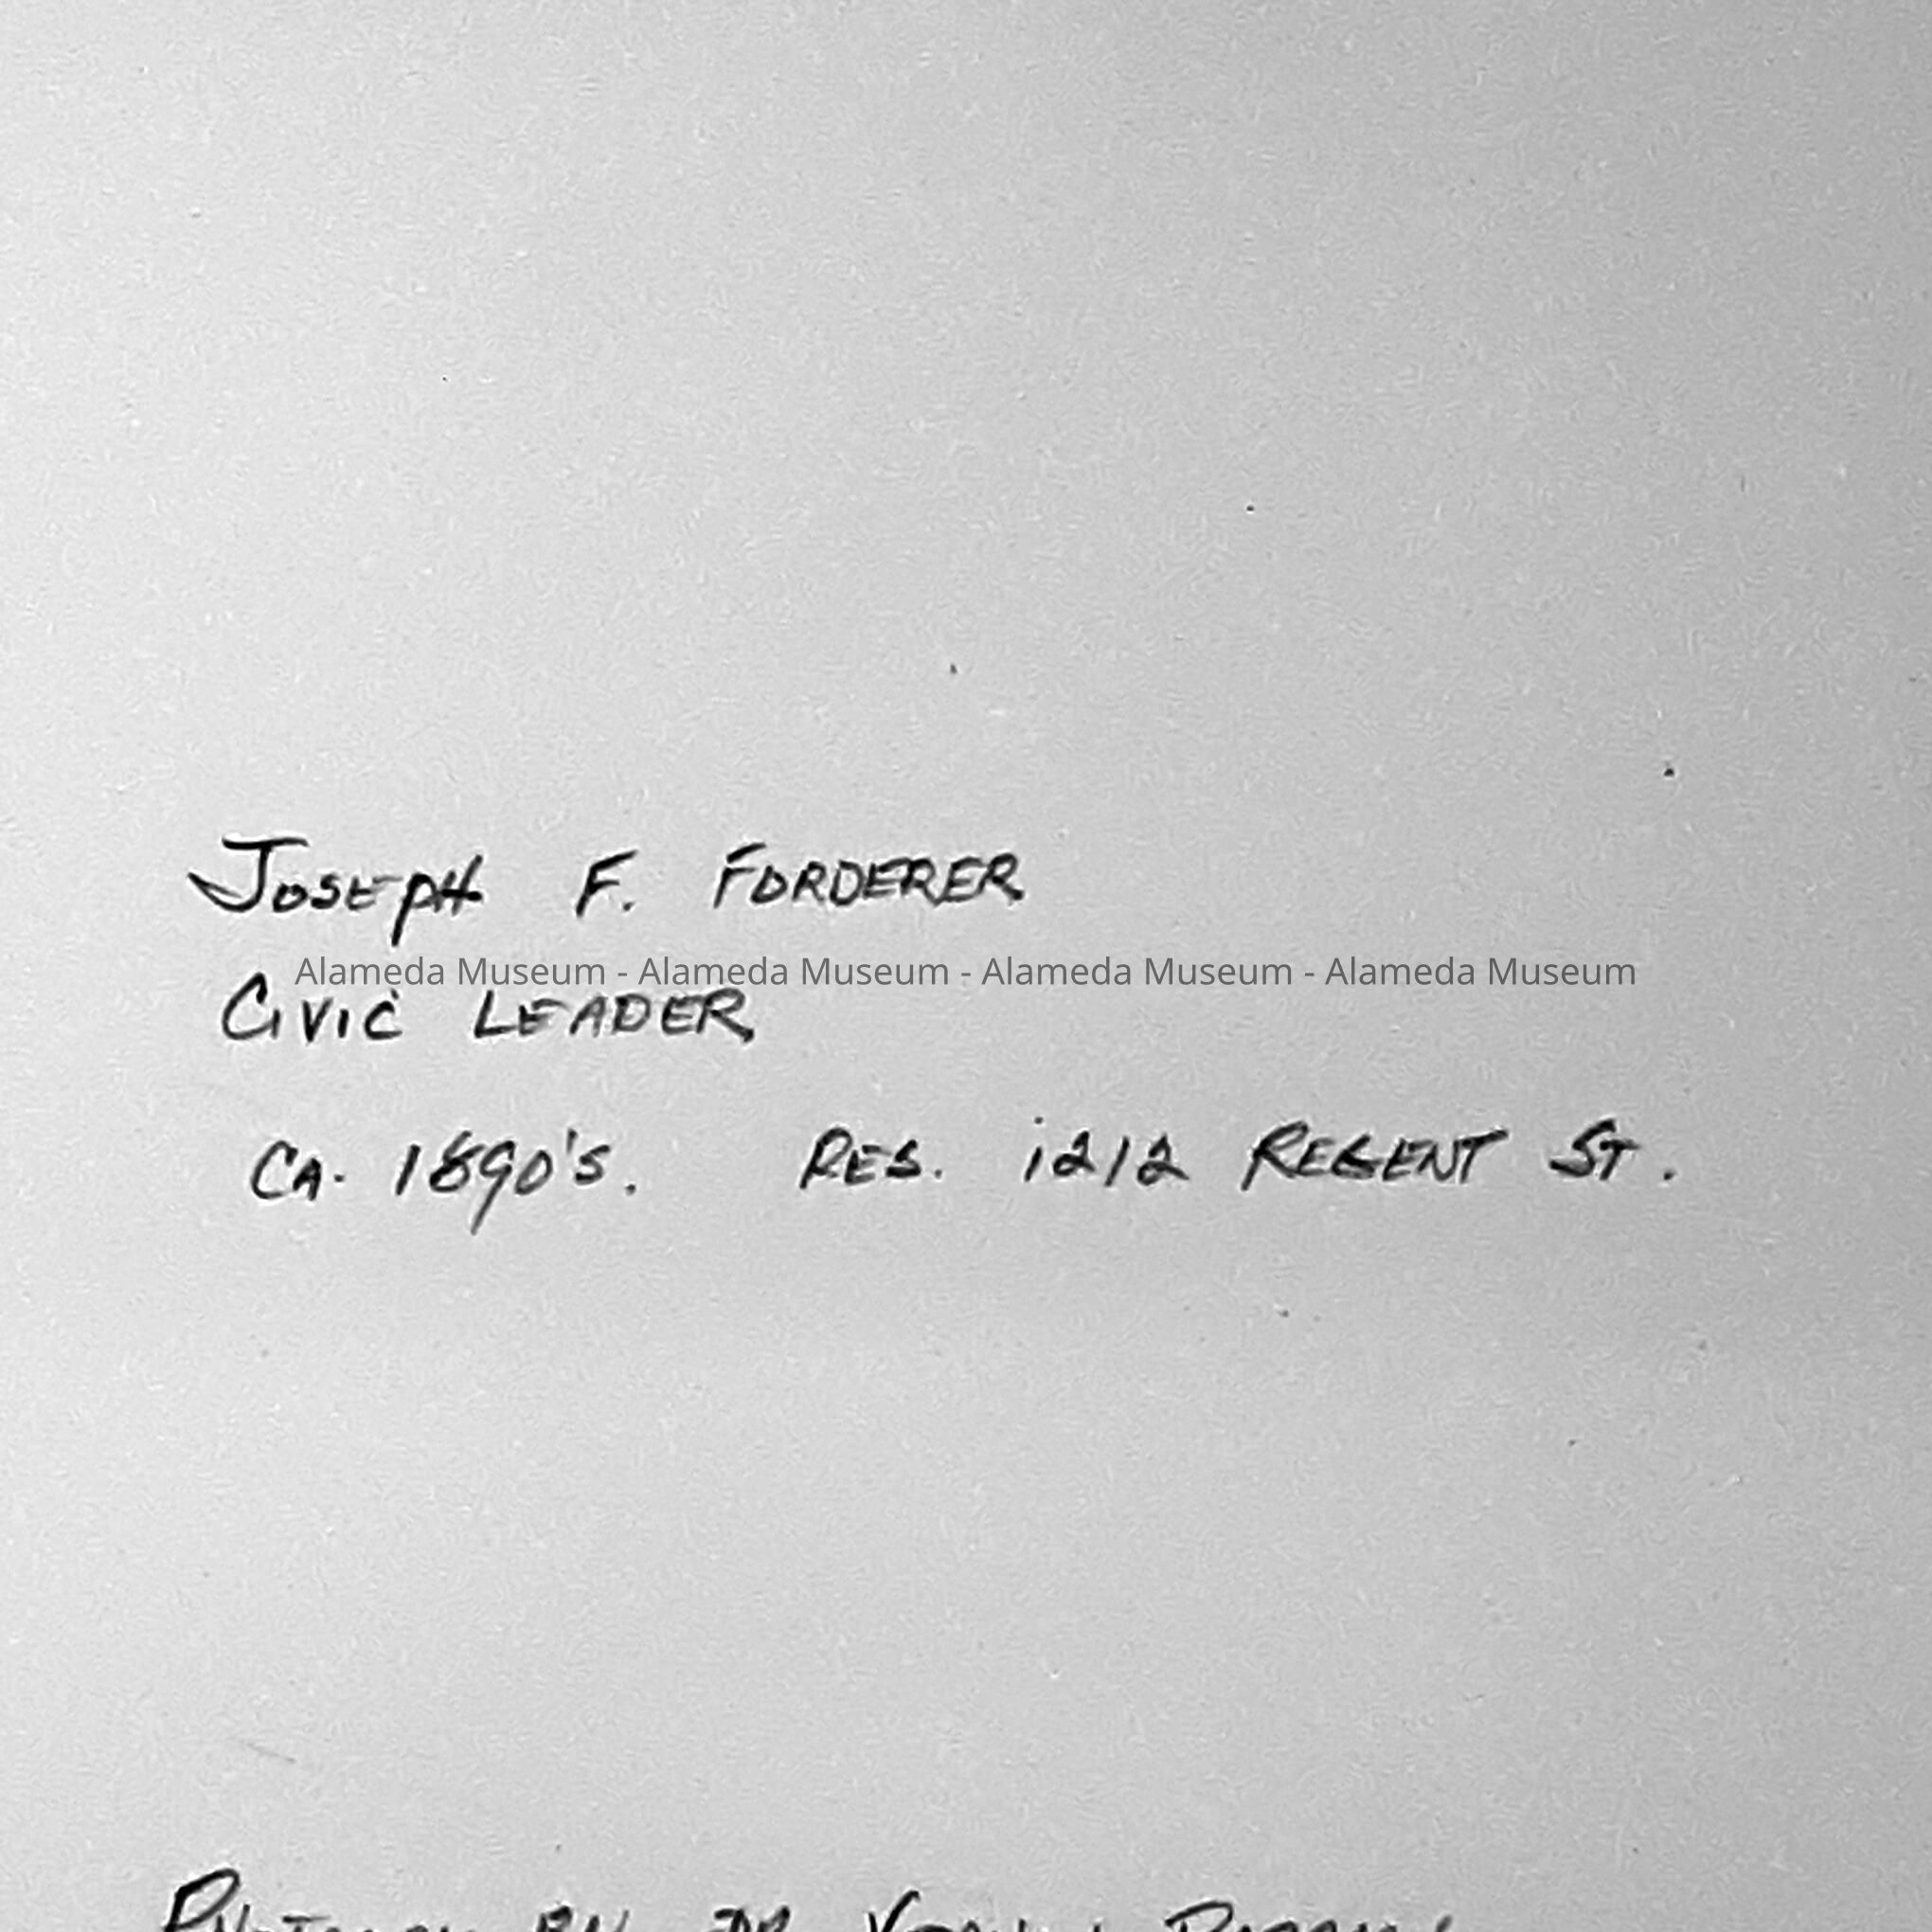 Joseph F. Forderer
Alameda Museum - Alameda Museum - Alameda Museum - Alameda Museum
Civic Leader
Ca. 1890's. Res. 1212 Regent St.